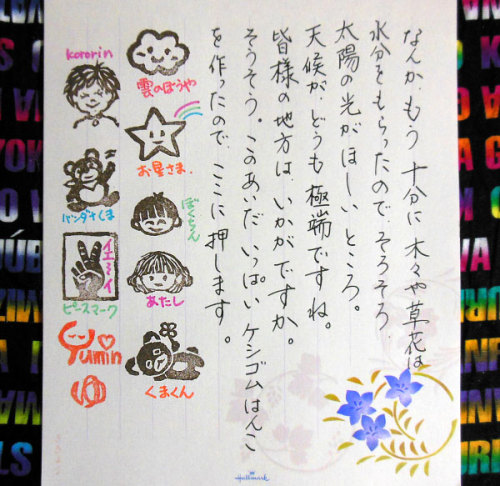 なんか、もう十分に木々や草花は
水分をもらったので、そろそろ
太陽の光がほしいところ。
天候が、どうも極端ですね。
皆様の地方は、いかがですか。
そうそう。このあいだ、いっぱいケシゴムはんこ
を作ったので、ここに押します。
雲のぼうや
お星さま
ぼくちゃん
あたし
くまくん
Kororin
パンダさくま
イエーイ
ピースマーク
Yumin
Hallmark